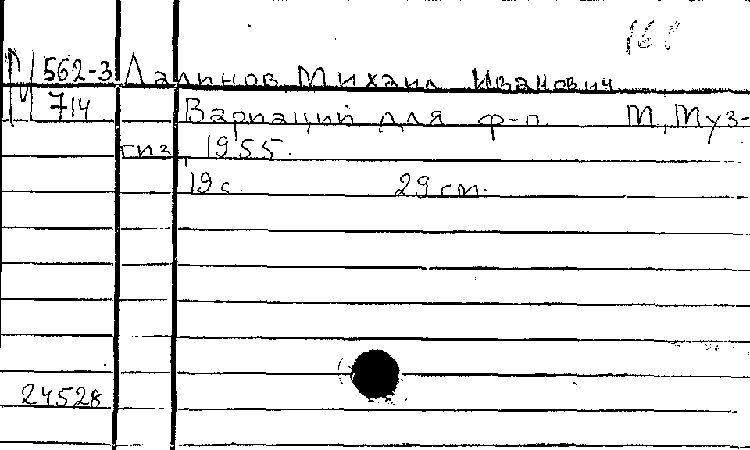 168
М 562-3 Лапинов, Михаил Иванович
714 Вариации для ф-п. М, Муз-
гиз, 1955.
19 с. 29 см.
24528